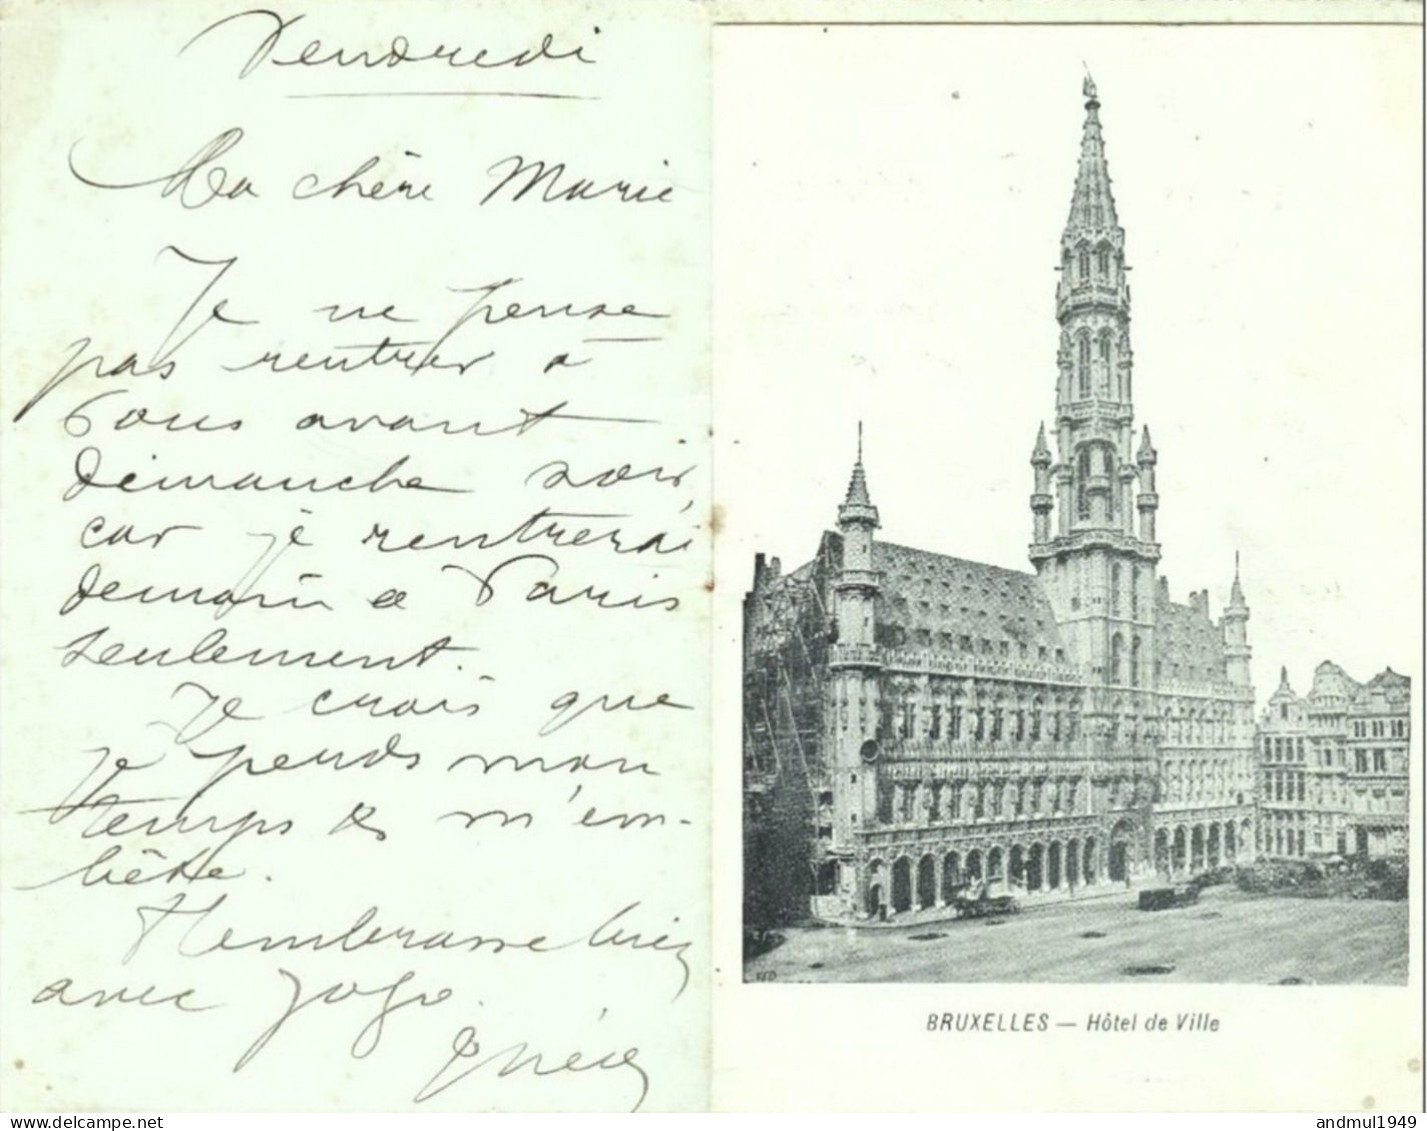 Vendredi
Ma chère Marie
Je ne pense
pas rentrer à
avant
dimanche soir,
car je rentrerai
demain à Paris
seulement.
Je crois que
je perds mon
temps & m'em-
bête.
T'embrasse bien
avec Jojo.
BRUXELLES — Hôtel de Ville
andmul1949